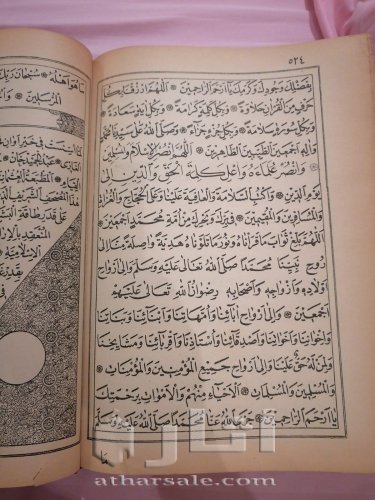 ٥٢٤
بفضلك وجودك وكرمك يا ارحم الراحمين اللهم ارزقنا بكل
حرف من القرآن حلاوة وبكل كلمة كرامة وبكل آية سعادة
وبكل سورة سلامة وبكل جزء جزاء وصلى الله على سيدنا محمد
واله اجمعين الطيبين الطاهرين اللهم انصر الاسلام والمسلمين
وانصر علماءه واعل كلمة الحق والدين الى
يوم الدين واكتب السلامة والعافية علينا وعلى الحجاج والغزاة
والمسافرين والمقيمين في برك وبحرك من امة محمد اجمعين
اللهم بلغ ثواب ما قرأناه ونور ما تلوناه هدية واصلة منا الى
روح نبينا محمد صلى الله تعالى عليه وسلم والى ارواح
اولاده وازواجه واصحابه رضوان الله تعالى عليهم
اجمعين والى ارواح آبائنا وامهاتنا وابنائنا وبناتنا
واخواننا واخواتنا واصدقائنا واستاذنا واقربائنا ومشايخنا
ولمن له حق علينا والى ارواح جميع المؤمنين والمؤمنات
والمسلمين والمسلمات الاحياء منهم والاموات برحمتك
يا ارحم الراحمين جزى الله عنا محمدا صلى الله عليه وسلم
ما
ما هو اهله سبحان ربك
المرسلين
أثارة
atharsale.com